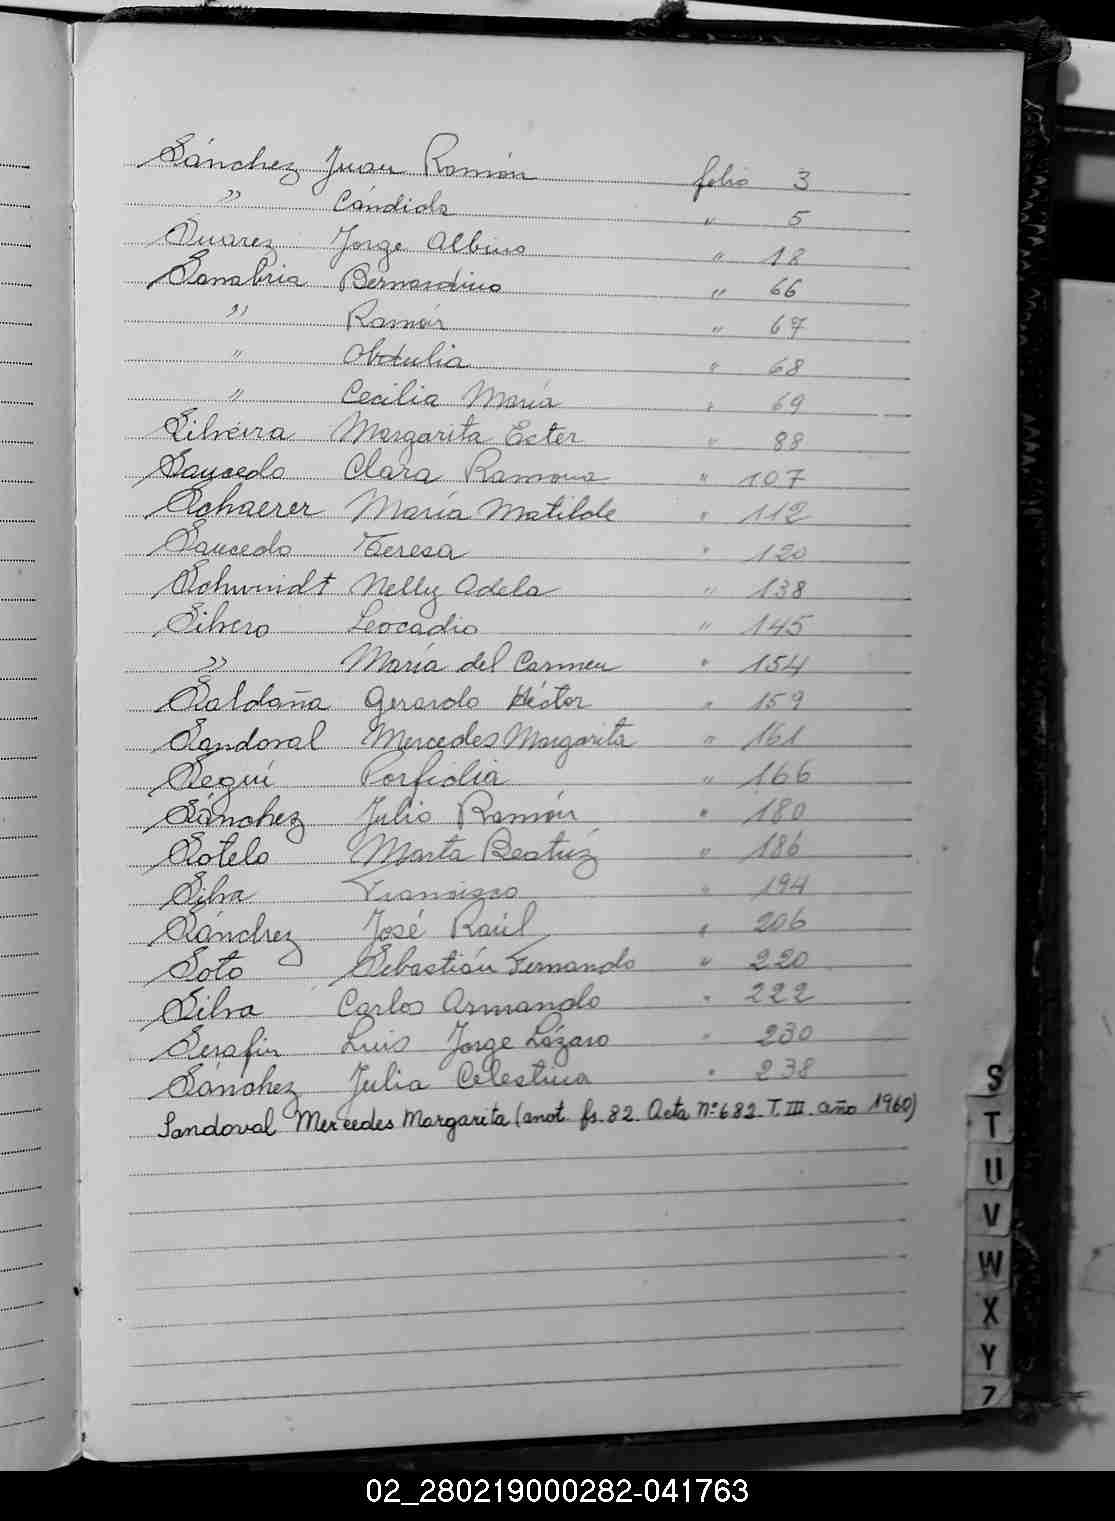 Sánchez Juan Ramón folio 3
" Cándida " 5
Suarez Jorge Albino " 18
Sanabria Bernardino " 66
" Ramón " 67
" Obdulia " 68
" Cecilia María " 69
Silveira Margarita Ester " 88
Saucedo Clara Ramona " 107
Schaerer María Matilde " 112
Saucedo Teresa " 120
Schmidt Nelly Adela " 138
Silvero Leocadio " 145
" María del Carmen " 154
Saldaña Gerardo Héctor " 159
Sandoval Mercedes Margarita " 161
Seguí Porfidia " 166
Sánchez Julio Ramón " 180
Sotelo Marta Beatriz " 186
Silva Francisco " 194
Sánchez José Raúl " 206
Soto Sebastián Fernando " 220
Silva Carlos Armando " 222
Serafin Luis Jorge Lázaro " 230
Sánchez Julia Celestina " 238
Sandoval Mercedes Margarita (anot. fs. 82. Acta Nº 682. T. III. año 1960)
S
T
U
V
W
X
Y
Z
02_280219000282-041763